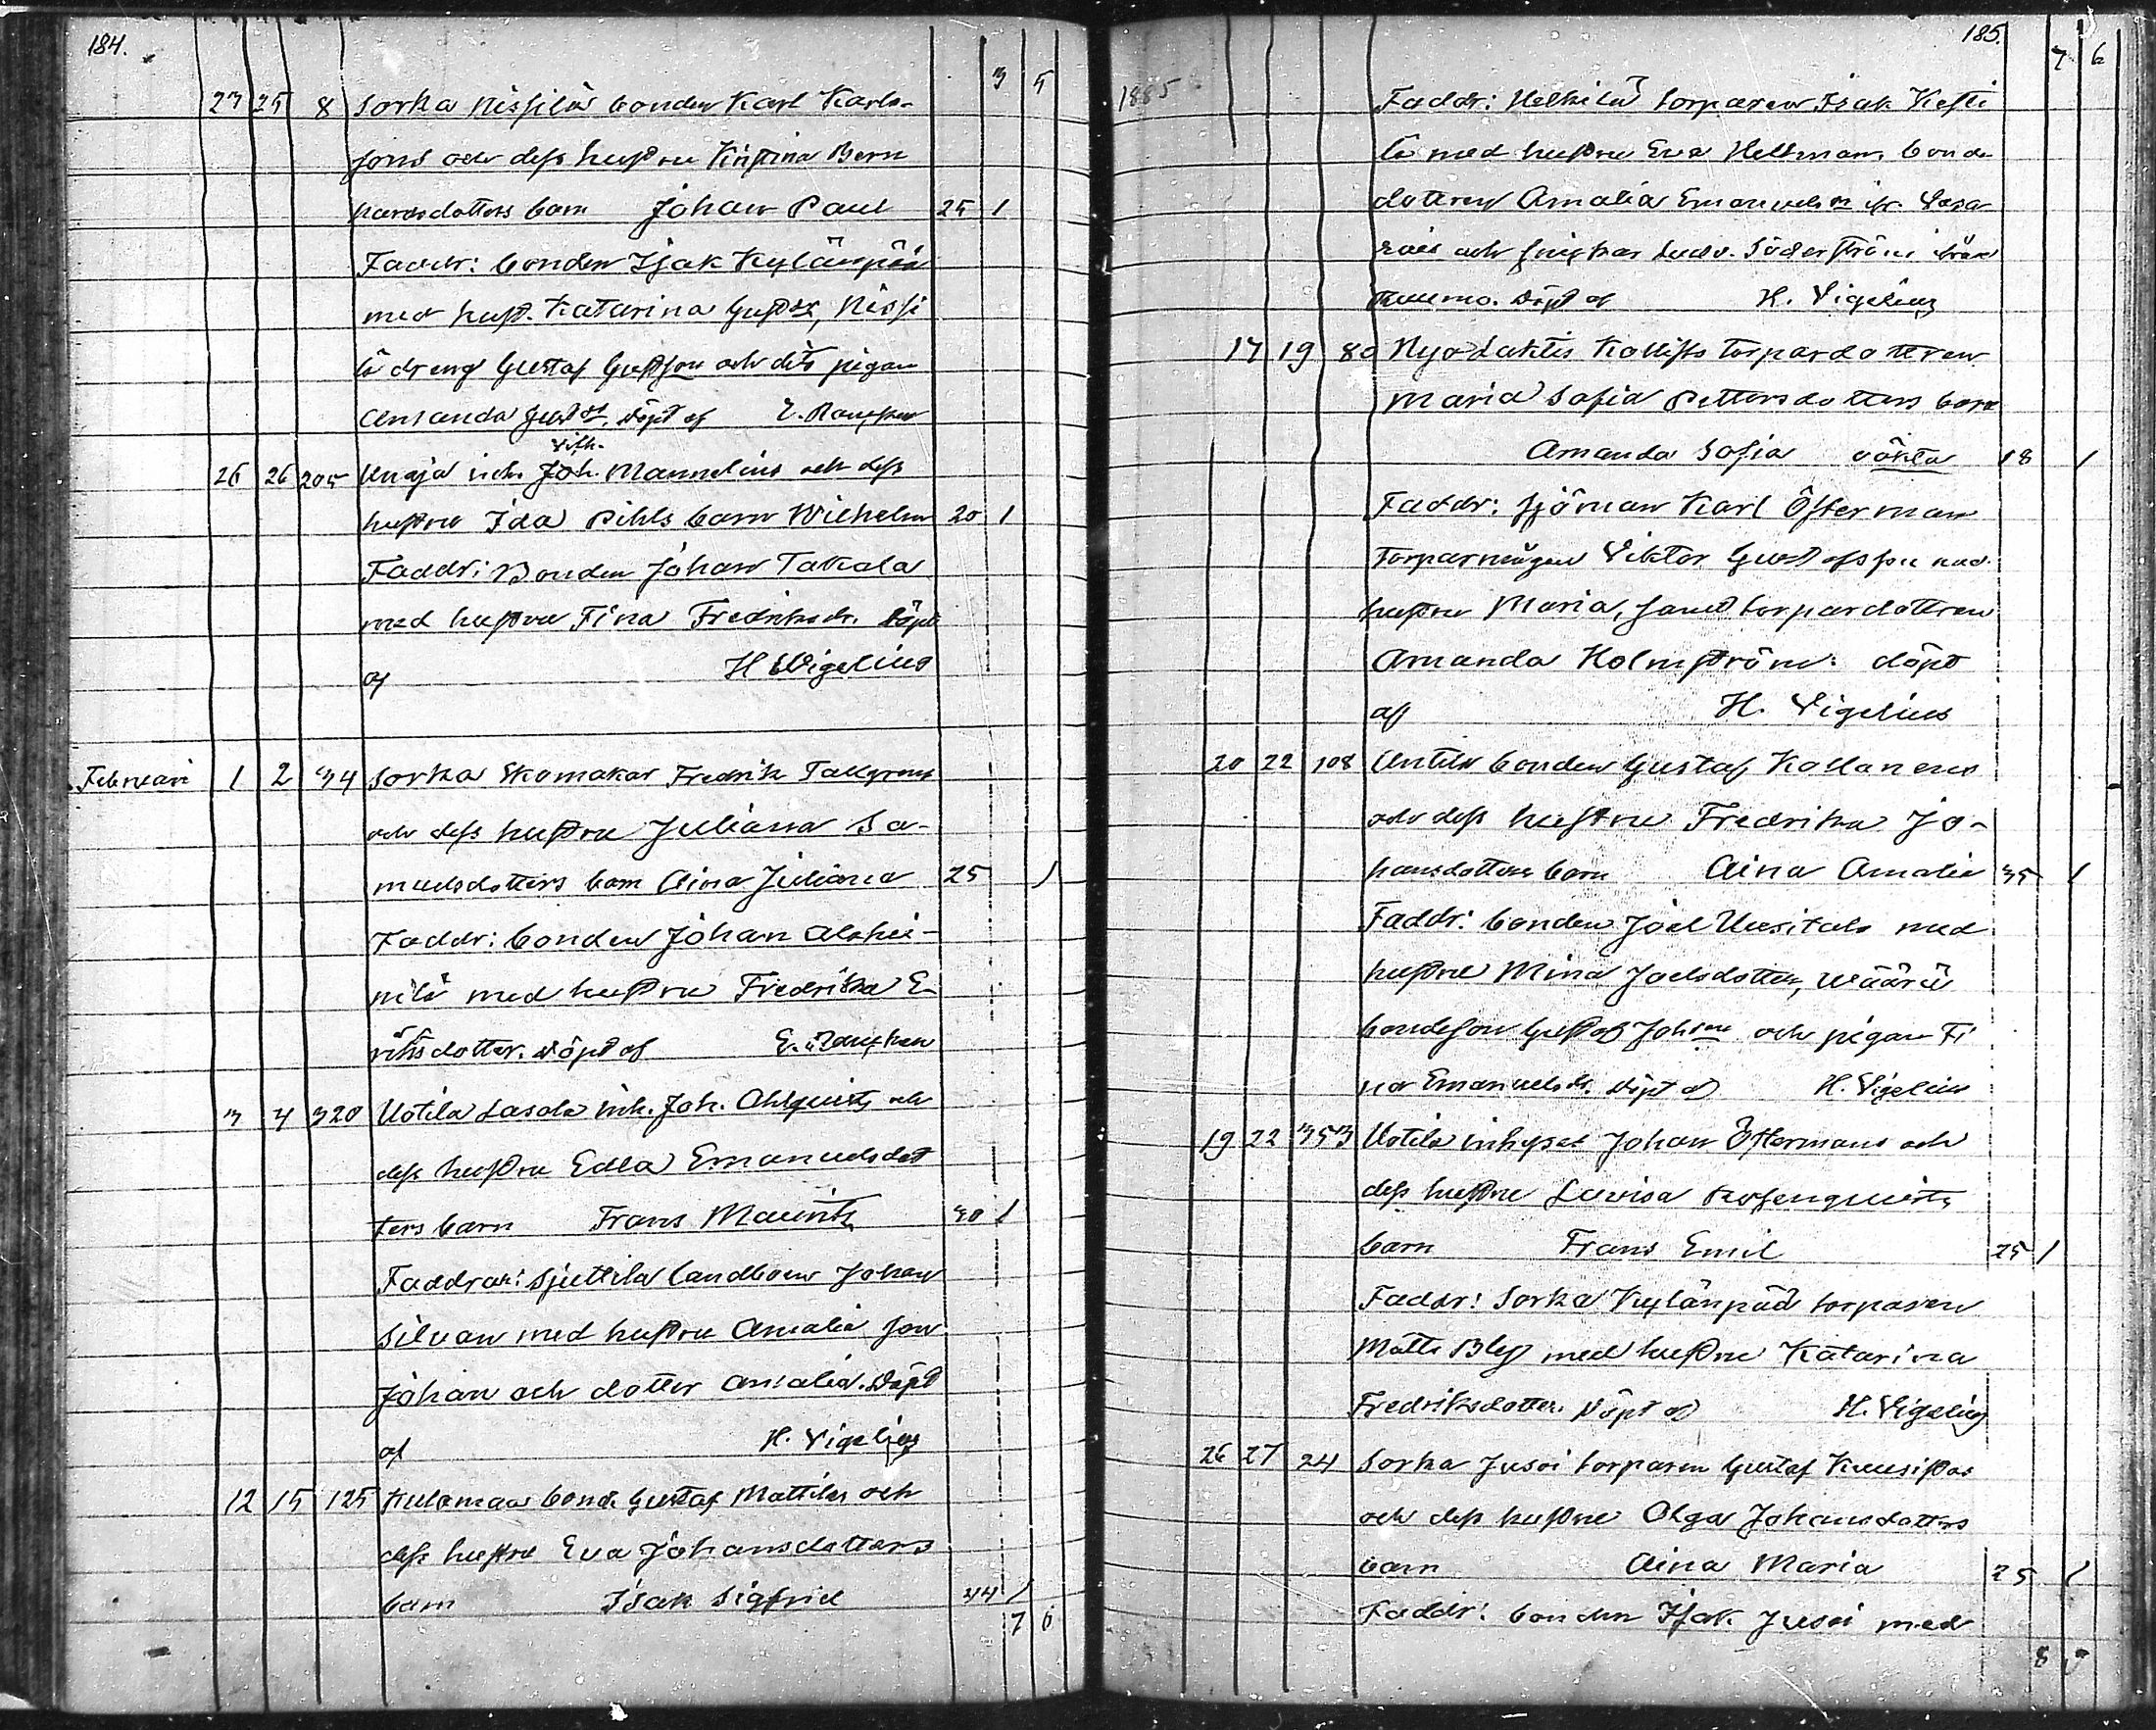 184.
3 5
23 25 8 Sorka Nissilä bonden Karl Karls-
sons och dess hustru Kristina Bern
hardsdotters barn Johan Paul 25 1
Faddr: bonden Isak Kylänpää
med hust. Katarina Gustdr, Nissi
lä dreng Gustaf Gustfson och dito pigan
Amanda dr. Döpt af
Vilh.
26 26 205 Unaja inh. Joh. Mannelius och dess
hustru Ida Pihls barn Wilhelm 20 1
Faddr: Bonden Johan Takala
med hustru Fina Fredriksdr. Döpt
af H Wigelius
Februari 1 2 34 Sorka Skomakar Fredrik Tallgrens
och dess hustru Juliana Sa-
muelsdotters barn Aina Juliana 25 1
Faddr: bonden Johan Alahei-
nilä med hustru Fredrika E-
riksdotter. Döpt af
3 4 320 Uotila Lasola inh. Joh. Ahlquists och
dess hustru Edla Emanuelsdot
ters barn Frans Mauritz 30 1
Faddrar: Sjuttila landboen Johan
Silvan med hustru Amalia son
Johan och dotter Amalia. Döpt
af H. Vigelius
12 15 125 Kulamaa bond. Gustaf Mattilas och
dess hustru Eva Johansdotters
barn Isak Sigfrid 44 1
7 6
185.
7 6
1885
Faddr: Heikilä torparen Isak Kesti
lä med hustru Eva Hellman, bonde
dottren Amalia Emanuelsdr ifr. Vasa
rais och Ludv. Söderström ifrån
Raumo. Döpt af H. Vigelius
17 19 80 Nya Lahtis Kollisto torpardottren
Maria Sofia Pettersdotters barn
Amanda Sofia oäkta 18 1
Faddr: sjöman Karl Österman
Torparmågen Viktor Gustafsson med
hustru Maria, samt torpardottren
Amanda Holmström. döpt
af H. Vigelius
20 22 108 Antila bonden Gustaf Kollanens
och dess hustru Fredrika Jo-
hansdotters barn Aina Amalia 35 1
Faddr: bonden Joel Uusitalo med
hustru Mina Joelsdotter, Wäärü
bondeson Gustaf Johsson och pigan Fi
na Emanuelsdr. Döpt af H. Vigelius
19 22 353 Uotila inhyses Johan Östermans och
dess hustru Lovisa Rosenquists
barn Frans Emil 25 1
Faddr: Sorka Kylänpää torparen
Matts Bly med hustru Katarina
Fredriksdotter. Döpt af H. Vigelius
26 27 24 Sorka Jusoi torparen Gustaf Kuusistos
och dess hustru Olga Johansdotters
barn Aina Maria 25 1
Faddr: bonden Isak Jusoi med
8 9